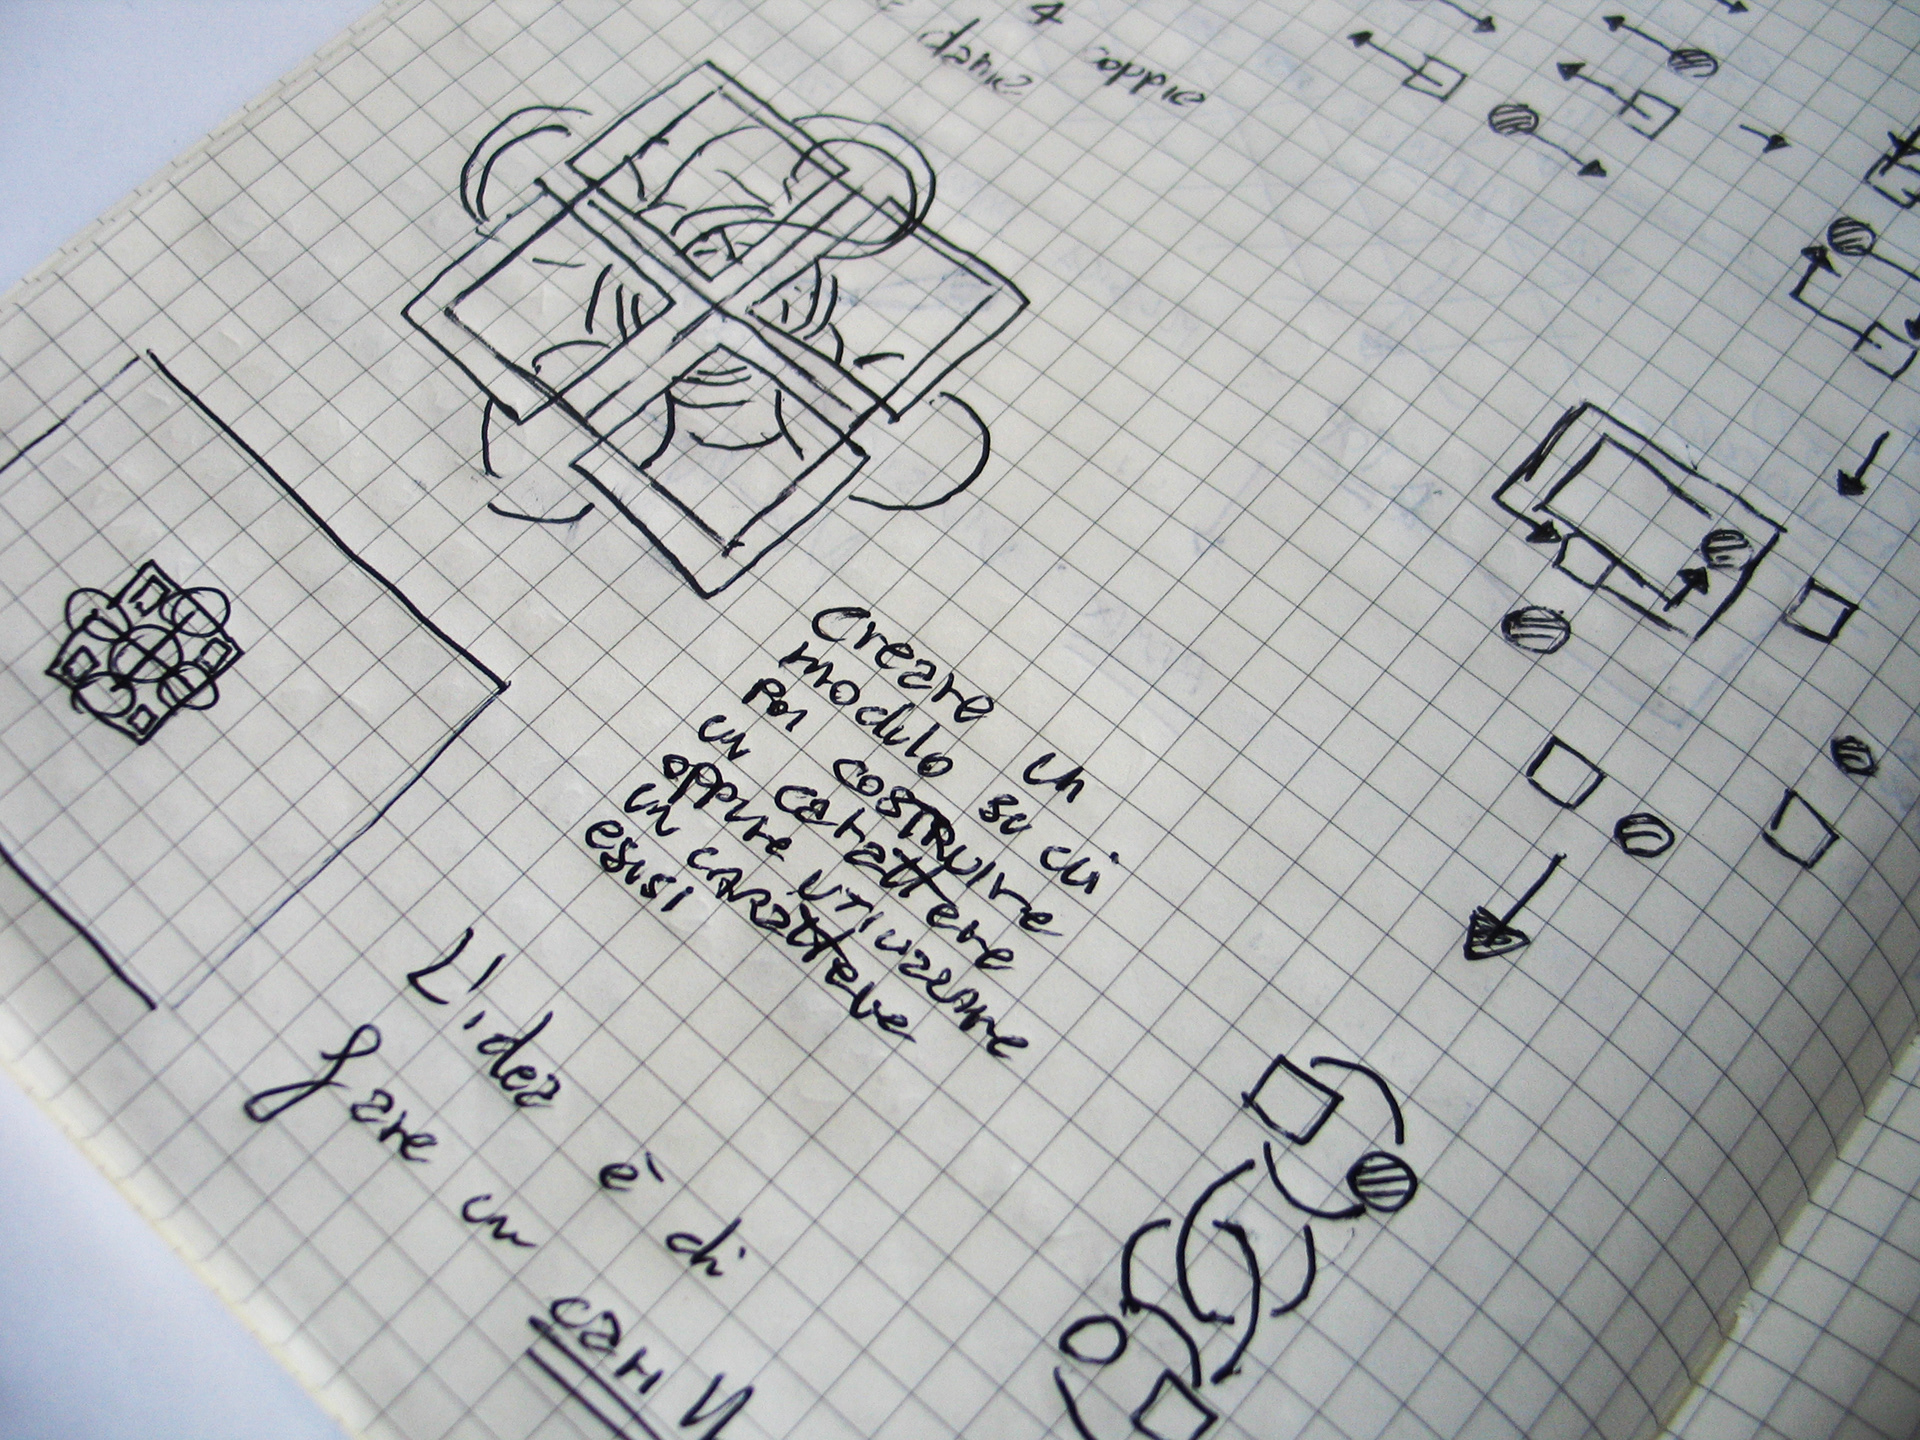 4 coppie
e dame
Creare un
modulo su cui
poi COSTRUIRE
un carattere
oppure UTILIZZARE
un CARATTERE
esisi
L'idea è di
fare un